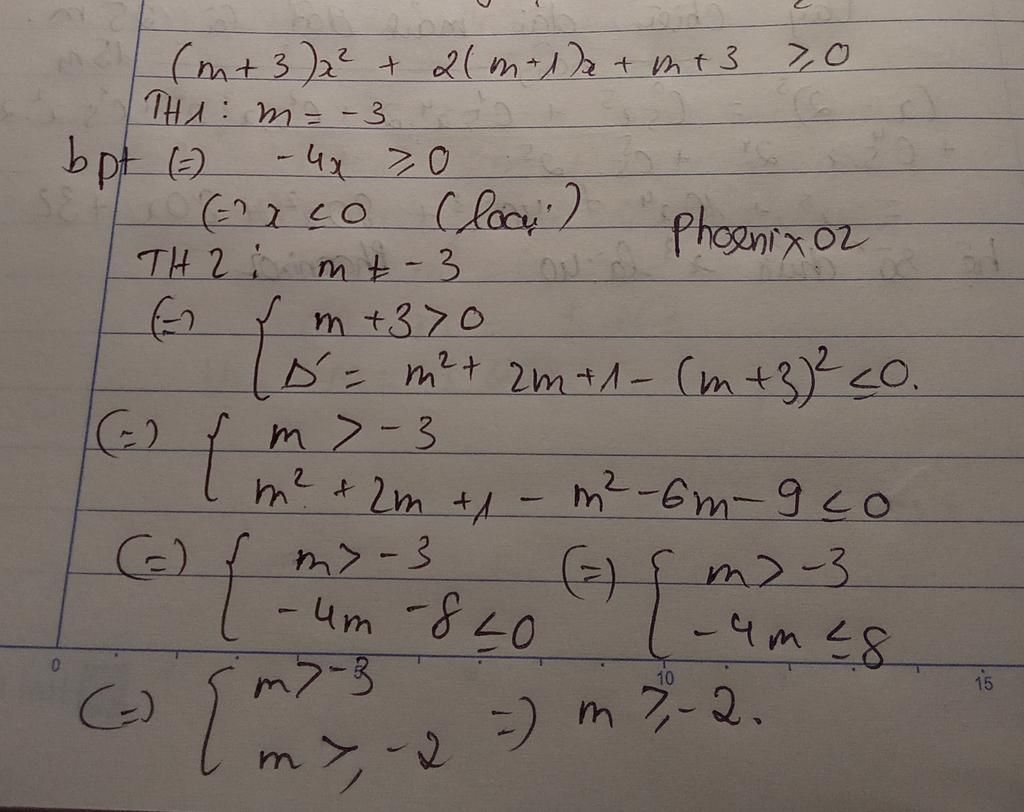 (m+3)x² + 2(m+1)x + m+3 ≥ 0
TH1: m = -3
bpt (=) -4x ≥ 0
(=) x ≤ 0 (loại)
Phoenix02
TH2: m ≠ -3
(=) { m+3 > 0
Δ' = m² + 2m+1 - (m+3)² ≤ 0.
(=) { m > -3
m² + 2m + 1 - m² - 6m - 9 ≤ 0
(=) { m > -3 (=) { m > -3
-4m - 8 ≤ 0 -4m ≤ 8
0 10 15
(=) { m > -3
m ≥ -2 =) m ≥ -2.